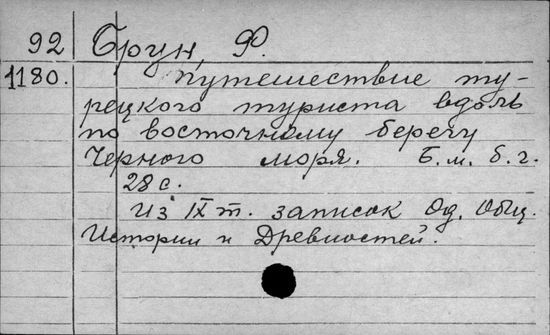 92 Брун, Ф.
1180. Путешествие ту-
рецкого туриста вдоль
по восточному берегу
Черного моря. Б.м. б.г.
28 с.
Из IX т. записок Од. Общ.
Истории и Древностей.